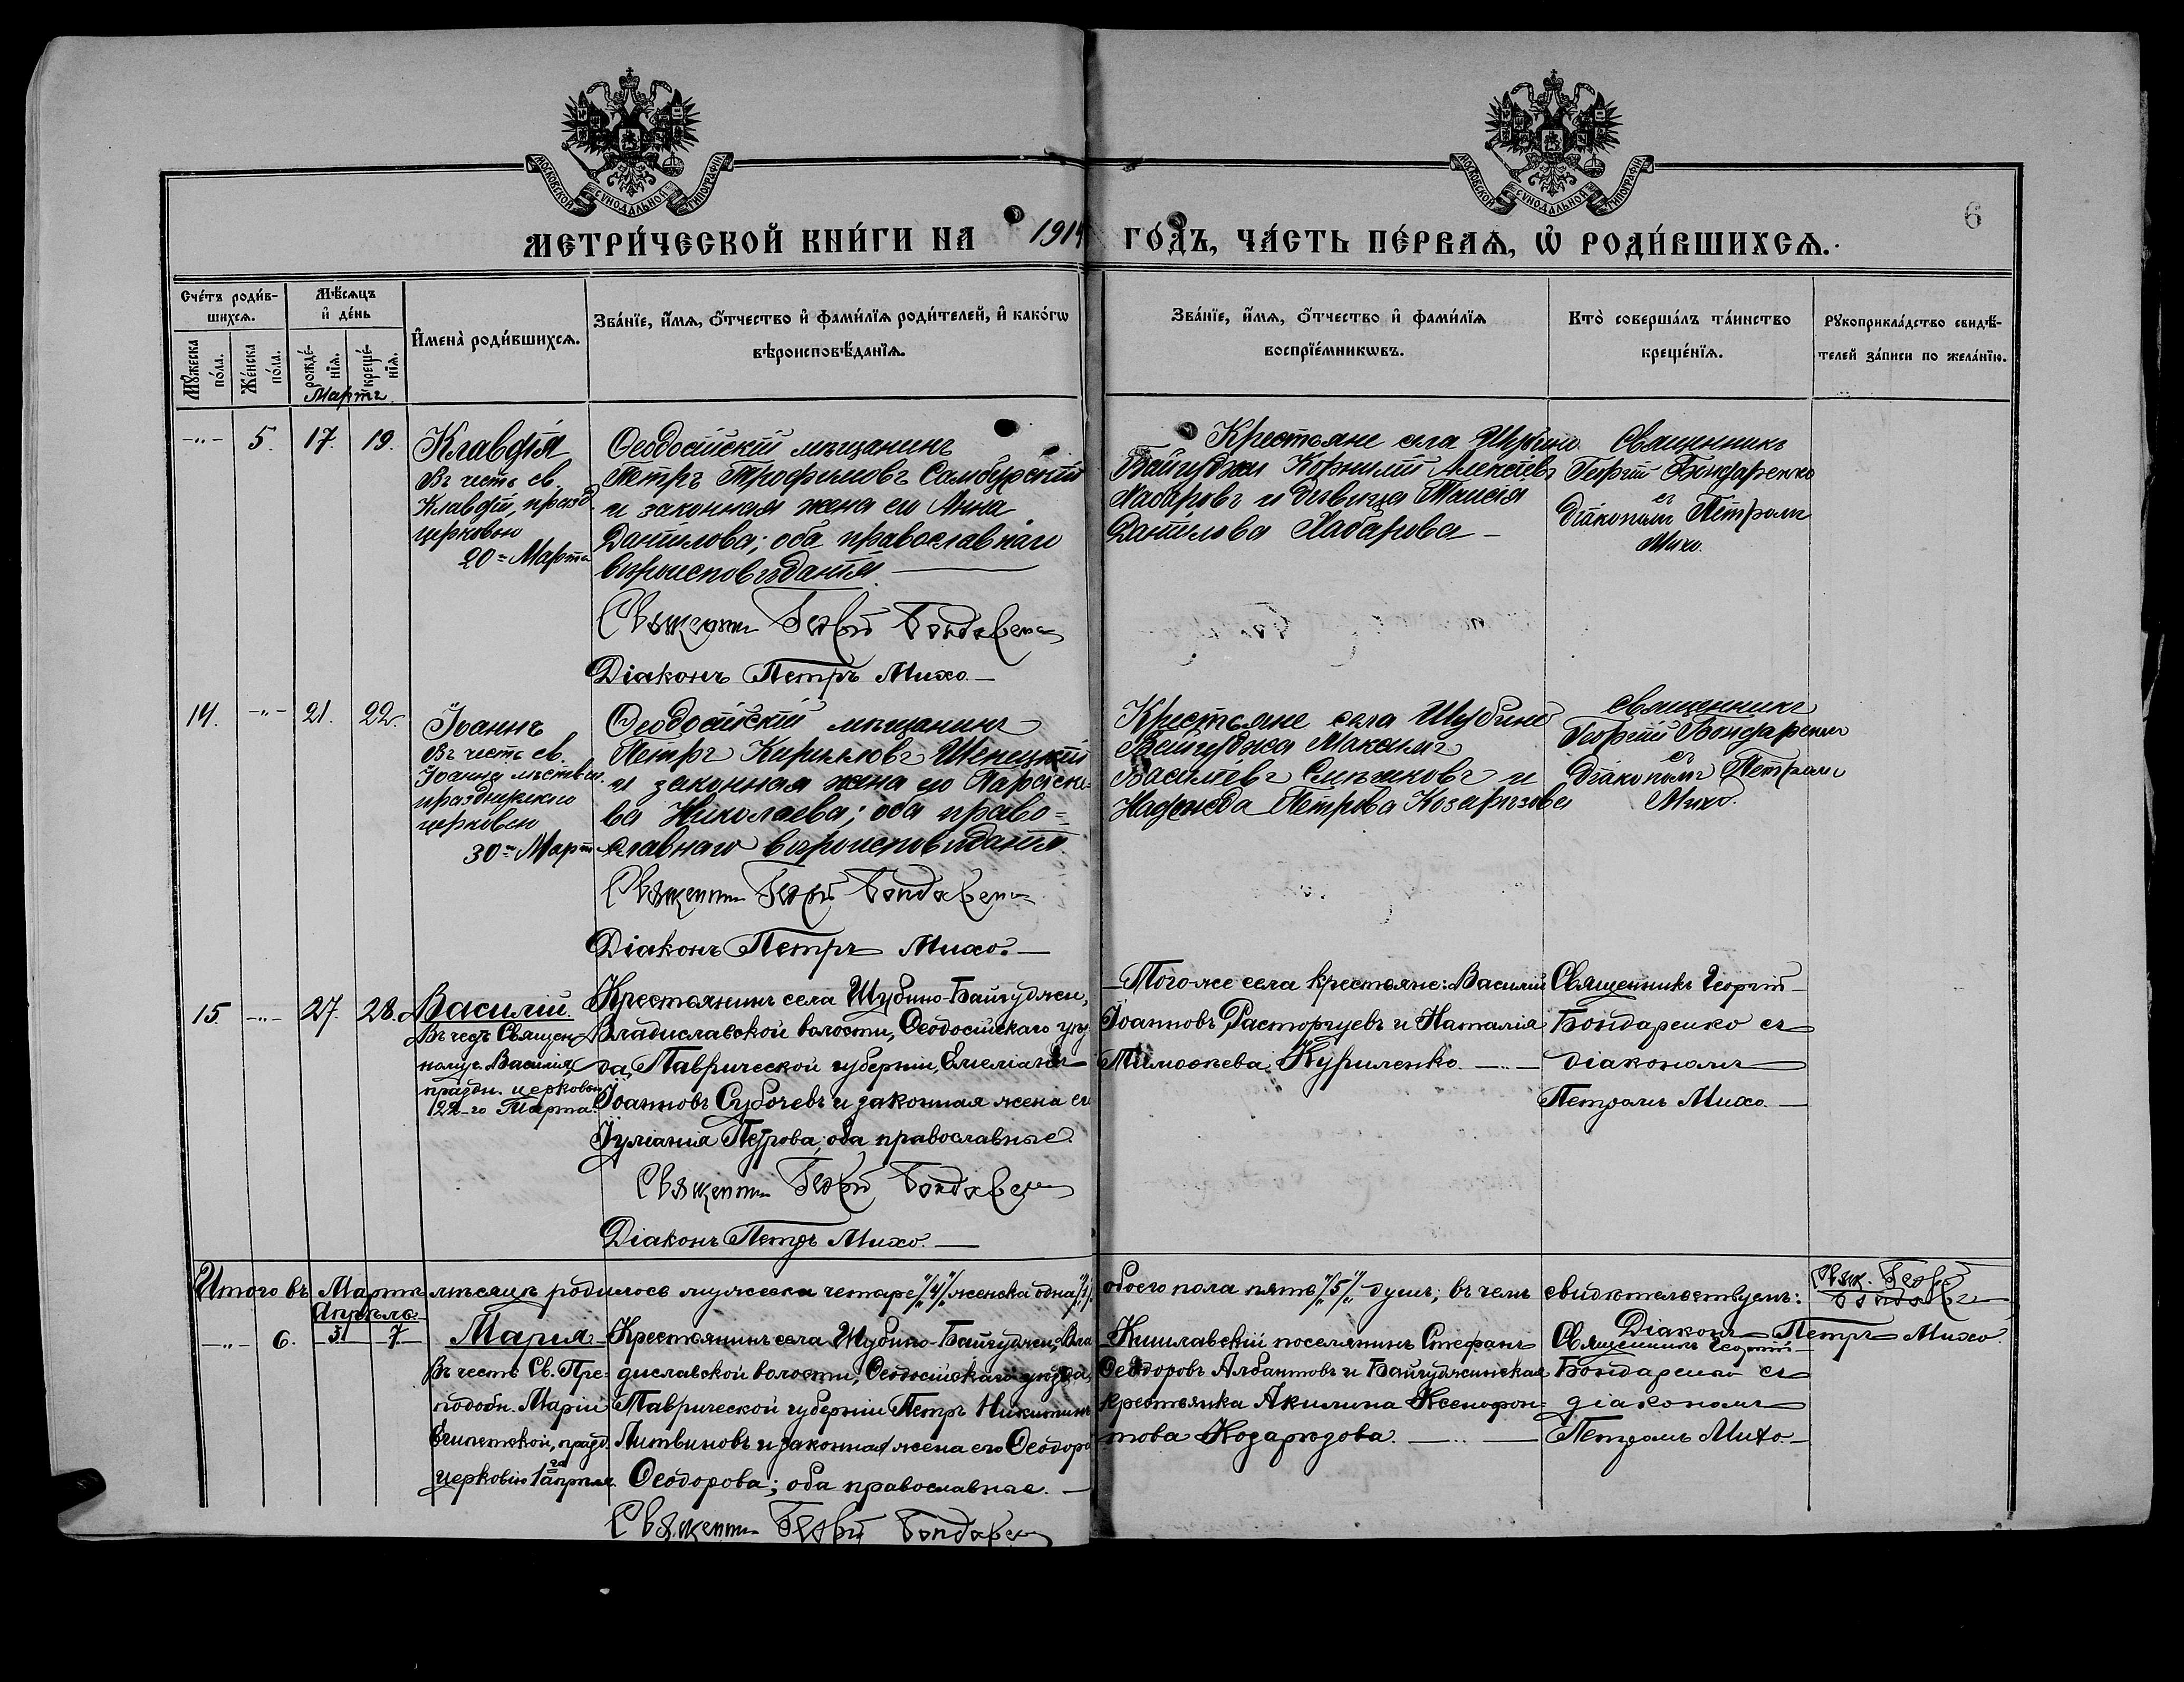 МОСКОВСКОЙ СѴНОДАЛЬНОЙ ТИПОГРАФІИ
МОСКОВСКОЙ СѴНОДАЛЬНОЙ ТИПОГРАФІИ
6
МЕТРИ́ЧЕСКОЙ КНИ́ГИ НА 1914 ГО́ДЪ, ЧА́СТЬ ПЕ́РВАѦ, Ѡ҆ РОДИ́ВШИХСѦ.
Сче́тъ роди́вшихсѧ.
Мꙋ́жеска по́ла.
Же́нска по́ла.
Мѣ́сѧцъ и҆ де́нь
рожде́нїѧ.
креще́нїѧ.
И҆мена̀ роди́вшихсѧ.
Зва́нїе, и҆́мѧ, ѻ҆́тчество и҆ фами́лїѧ роди́телей, и҆ како́гѡ
вѣроисповѣ́данїѧ.
Зва́нїе, и҆́мѧ, ѻ҆́тчество и҆ фами́лїѧ
воспрїе́мникѡвъ.
Кто̀ соверша́лъ та́инство
креще́нїѧ.
Рꙋкоприкла́дство свидѣ́-
телей за́писи по жела́нїю.
Мартъ.
-„- 5. 17. 19.
Клавдія
Въ честь св.
Клавдіи, празд.
церковью
20 = Марта
Ѳеодосійскій мѣщанинъ
Петръ Трофимовъ Самбурскій
и законная жена его Анна
Даніилова; оба православнаго
вѣроисповѣданія.
Священникъ Георгій Бондаренко
Діаконъ Петръ Михо. —
Крестьяне села Шубино
Байгуджи Корнилій Алексѣевъ
Хабаровъ и дѣвица Таисія
Даніилова Хабарова —
Священникъ
Георгій Бондаренко
съ
діакономъ Петромъ
Михо.
14. -„- 21. 22.
Іоаннъ
Въ честь св.
Іоанна лѣствич.
празднуемаго
церковью
30 = Март
Ѳеодосійскій мѣщанинъ
Петръ Кирилловъ Шенецкій
и законная жена его Параске-
ва Николаева; оба право=
славнаго вѣроисповѣданія.
Священникъ Георгій Бондаренко
Діаконъ Петръ Михо. —
Крестьяне села Шубино
Байгуджа Максимъ
Василіевъ и
Надежда Петрова Козарѣзова
Священникъ
Георгій Бондаренко
съ
діакономъ Петромъ
Михо.
15. -„- 27. 28.
Василій.
Въ честь Священ-
номуч. Василія,
праздн. церковью
22-го Марта.
Крестьянинъ села Шубино-Байгуджи,
Владиславской волости, Ѳеодосійскаго уѣз-
да, Таврической губерніи, Емеліанъ
Іоанновъ Субочевъ и законная жена его
Іуліанія Петрова; оба православные.
Священникъ Георгій Бондаренко
Діаконъ Петръ Михо. —
Того-же села крестьяне: Василій
Іоанновъ Расторгуевъ и Наталія
Тимоѳеева Куриленко. —„—
Священникъ Георгій
Бондаренко съ
діакономъ
Петромъ Михо. —
Итого въ Мартѣ мѣсяцѣ родилось мужеска четыре /"4"/ женска одна /"1"/
обоего пола пять /"5"/ душъ; въ чемъ свидѣтельствуемъ: Свящ. Георгій Бондаренко
Діаконъ Петръ Михо.
Апрѣль
-„- 6. 5 7
Марія
Въ честь Св. Пре-
подобн. Маріи
Египетской, празд.
церковію 1го апрѣля.
Крестьянинъ села Шубино-Байгуджи, Вла-
диславской волости, Ѳеодосійскаго уѣзда,
Таврической губерніи Петръ Никитинъ
Литвиновъ и законная жена его Ѳеодора
Ѳеодорова; оба православные. —
Священникъ Георгій Бондаренко
Кишлавскій поселянинъ Стефанъ
Ѳеодоровъ Албантовъ и Байгуджинская
крестьянка Акилина Ксенофон-
това Козарѣзова. —„—
Священникъ Георгій
Бондаренко съ
діакономъ
Петромъ Михо. —